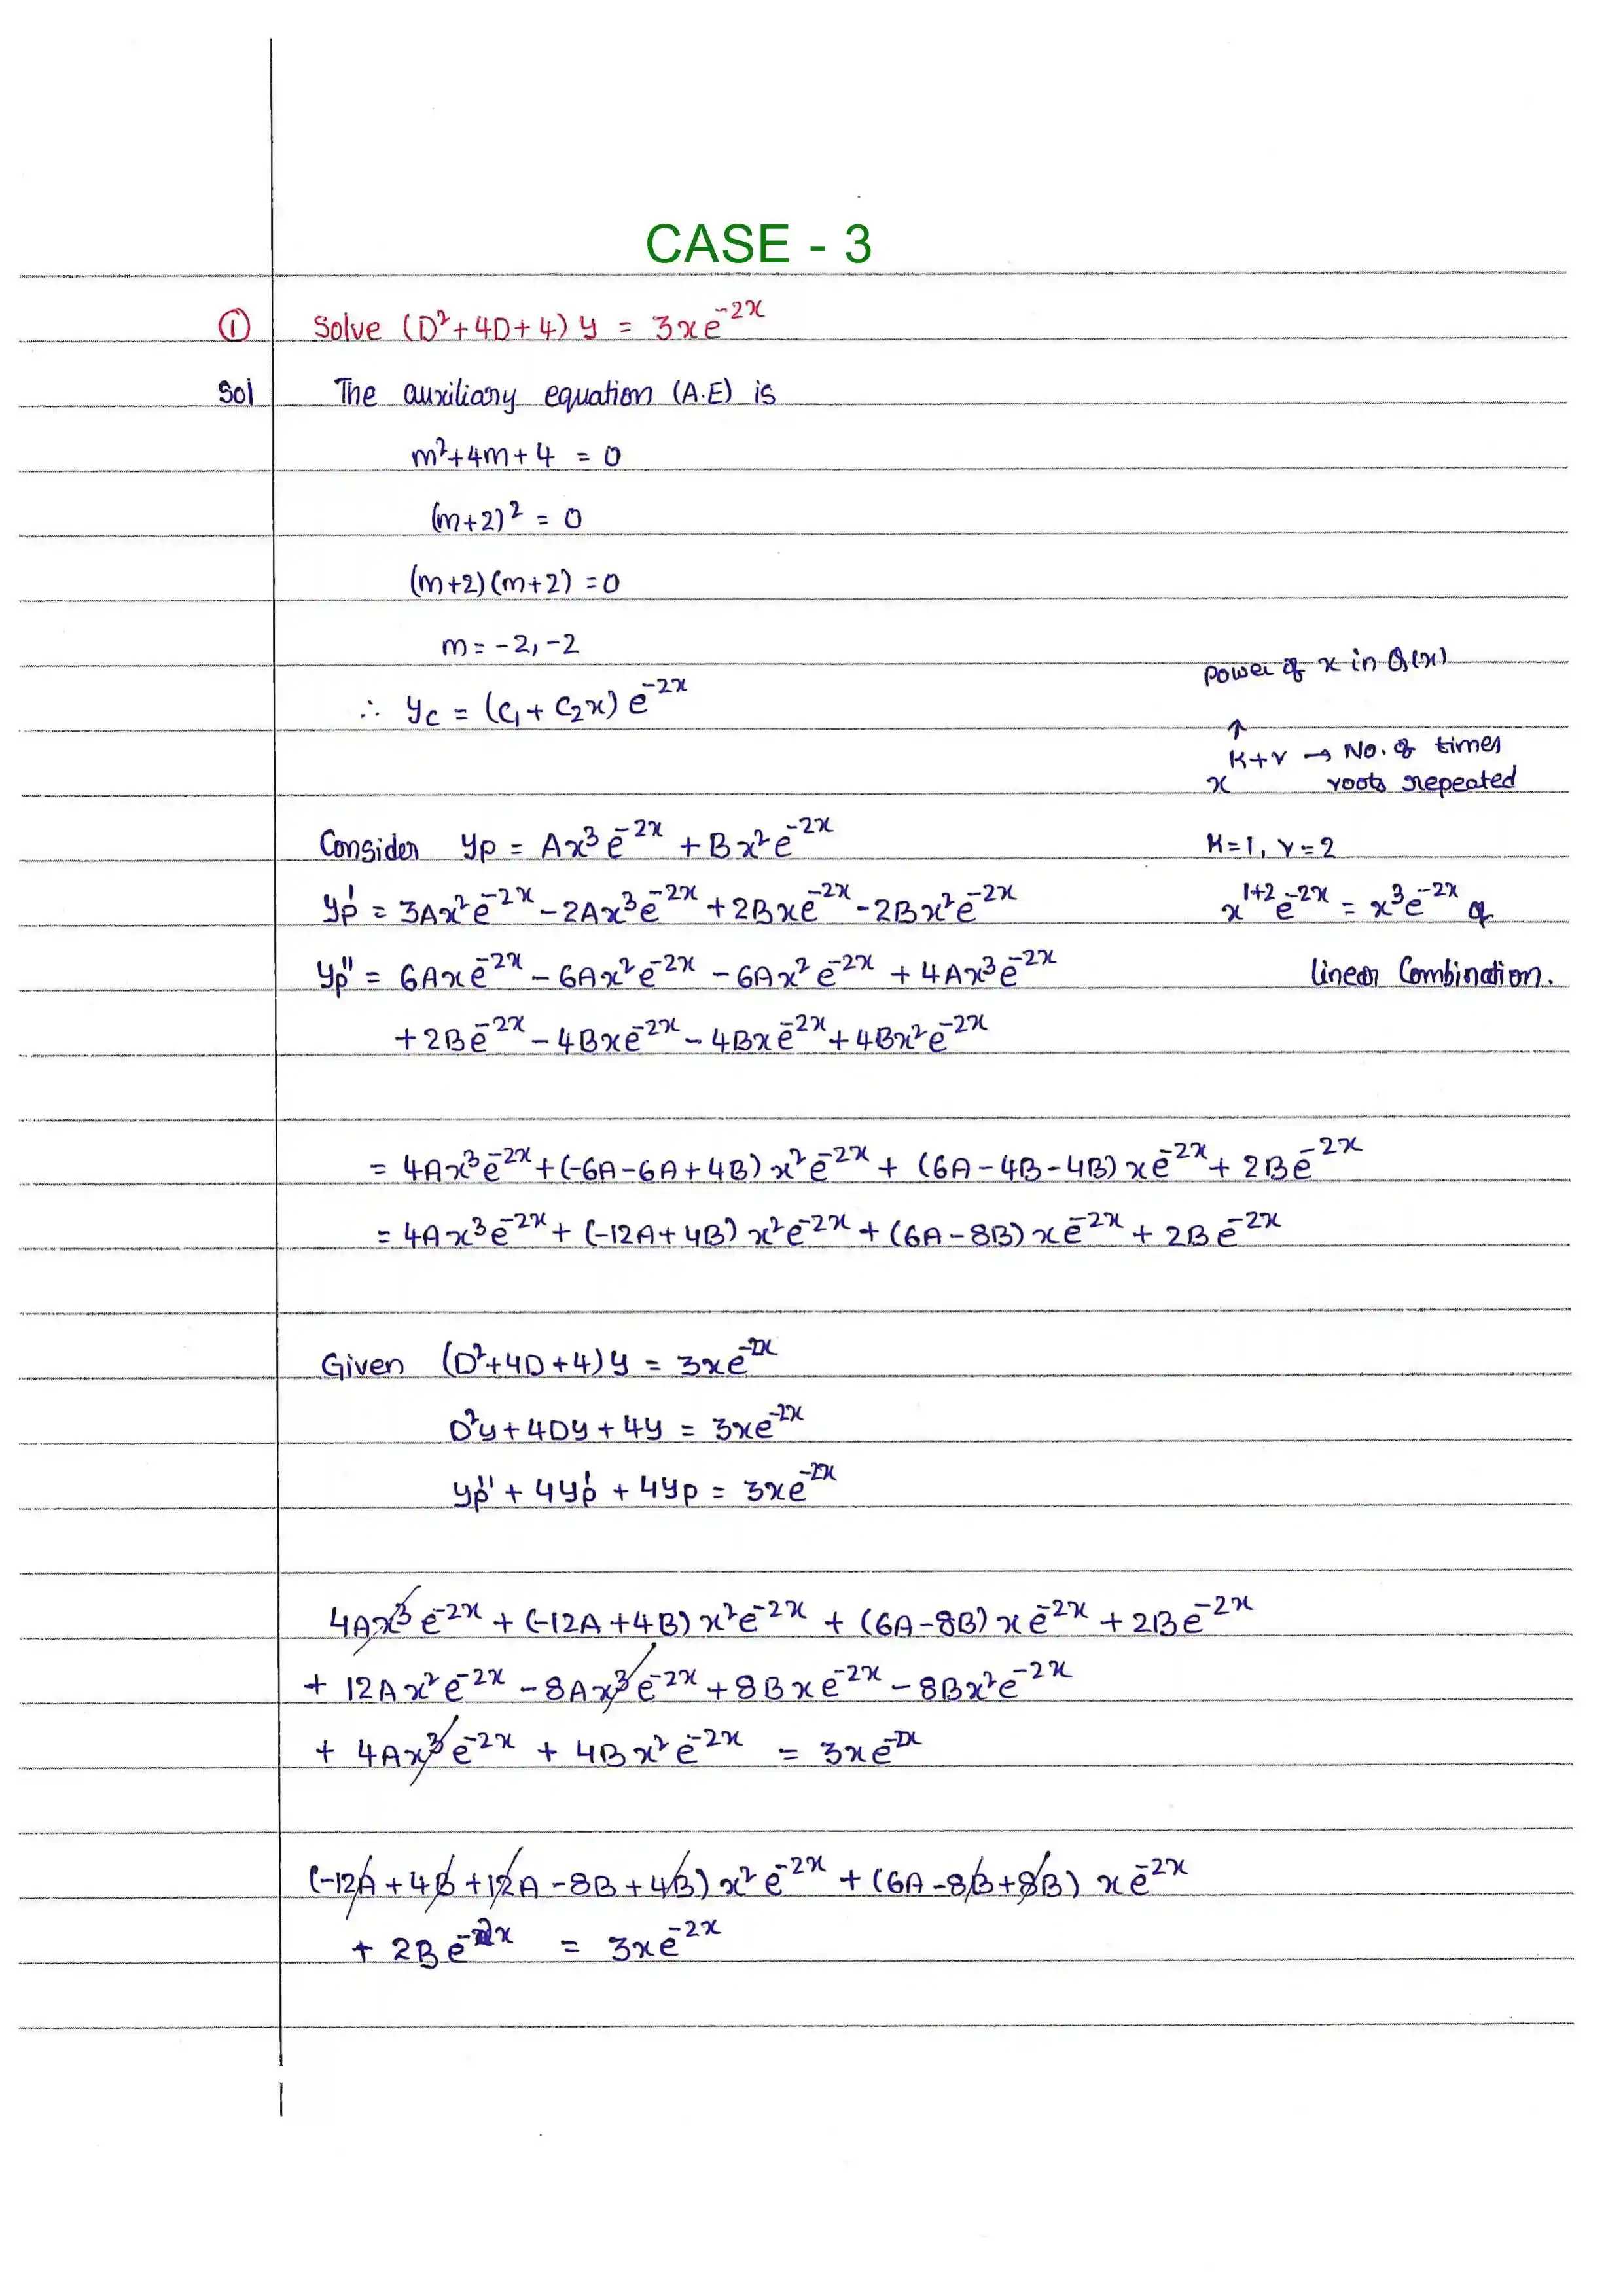 CASE - 3
① Solve (D²+4D+4) y = 3xe⁻²ˣ
Sol The auxiliary equation (A.E) is
m²+4m+4 = 0
(m+2)² = 0
(m+2)(m+2) = 0
m = -2, -2
∴ yc = (c₁ + c₂x) e⁻²ˣ
Power of x in Q(x)
↑
x^(K+r) → No. of times
roots repeated
Consider yp = Ax³e⁻²ˣ + Bx²e⁻²ˣ
K=1, r=2
yp' = 3Ax²e⁻²ˣ - 2Ax³e⁻²ˣ + 2Bxe⁻²ˣ - 2Bx²e⁻²ˣ
x¹⁺²e⁻²ˣ = x³e⁻²ˣ &
yp'' = 6Axe⁻²ˣ - 6Ax²e⁻²ˣ - 6Ax²e⁻²ˣ + 4Ax³e⁻²ˣ
linear Combination.
+ 2Be⁻²ˣ - 4Bxe⁻²ˣ - 4Bxe⁻²ˣ + 4Bx²e⁻²ˣ
= 4Ax³e⁻²ˣ + (-6A-6A+4B) x²e⁻²ˣ + (6A-4B-4B) xe⁻²ˣ + 2Be⁻²ˣ
= 4Ax³e⁻²ˣ + (-12A+4B) x²e⁻²ˣ + (6A-8B) xe⁻²ˣ + 2Be⁻²ˣ
Given (D²+4D+4)y = 3xe⁻²ˣ
D²y + 4Dy + 4y = 3xe⁻²ˣ
yp'' + 4yp' + 4yp = 3xe⁻²ˣ
4Ax³e⁻²ˣ + (-12A+4B) x²e⁻²ˣ + (6A-8B) xe⁻²ˣ + 2Be⁻²ˣ
+ 12Ax²e⁻²ˣ - 8Ax³e⁻²ˣ + 8Bxe⁻²ˣ - 8Bx²e⁻²ˣ
+ 4Ax³e⁻²ˣ + 4Bx²e⁻²ˣ = 3xe⁻²ˣ
(-12A + 4B + 12A - 8B + 4B) x²e⁻²ˣ + (6A - 8B + 8B) xe⁻²ˣ
+ 2Be⁻²ˣ = 3xe⁻²ˣ